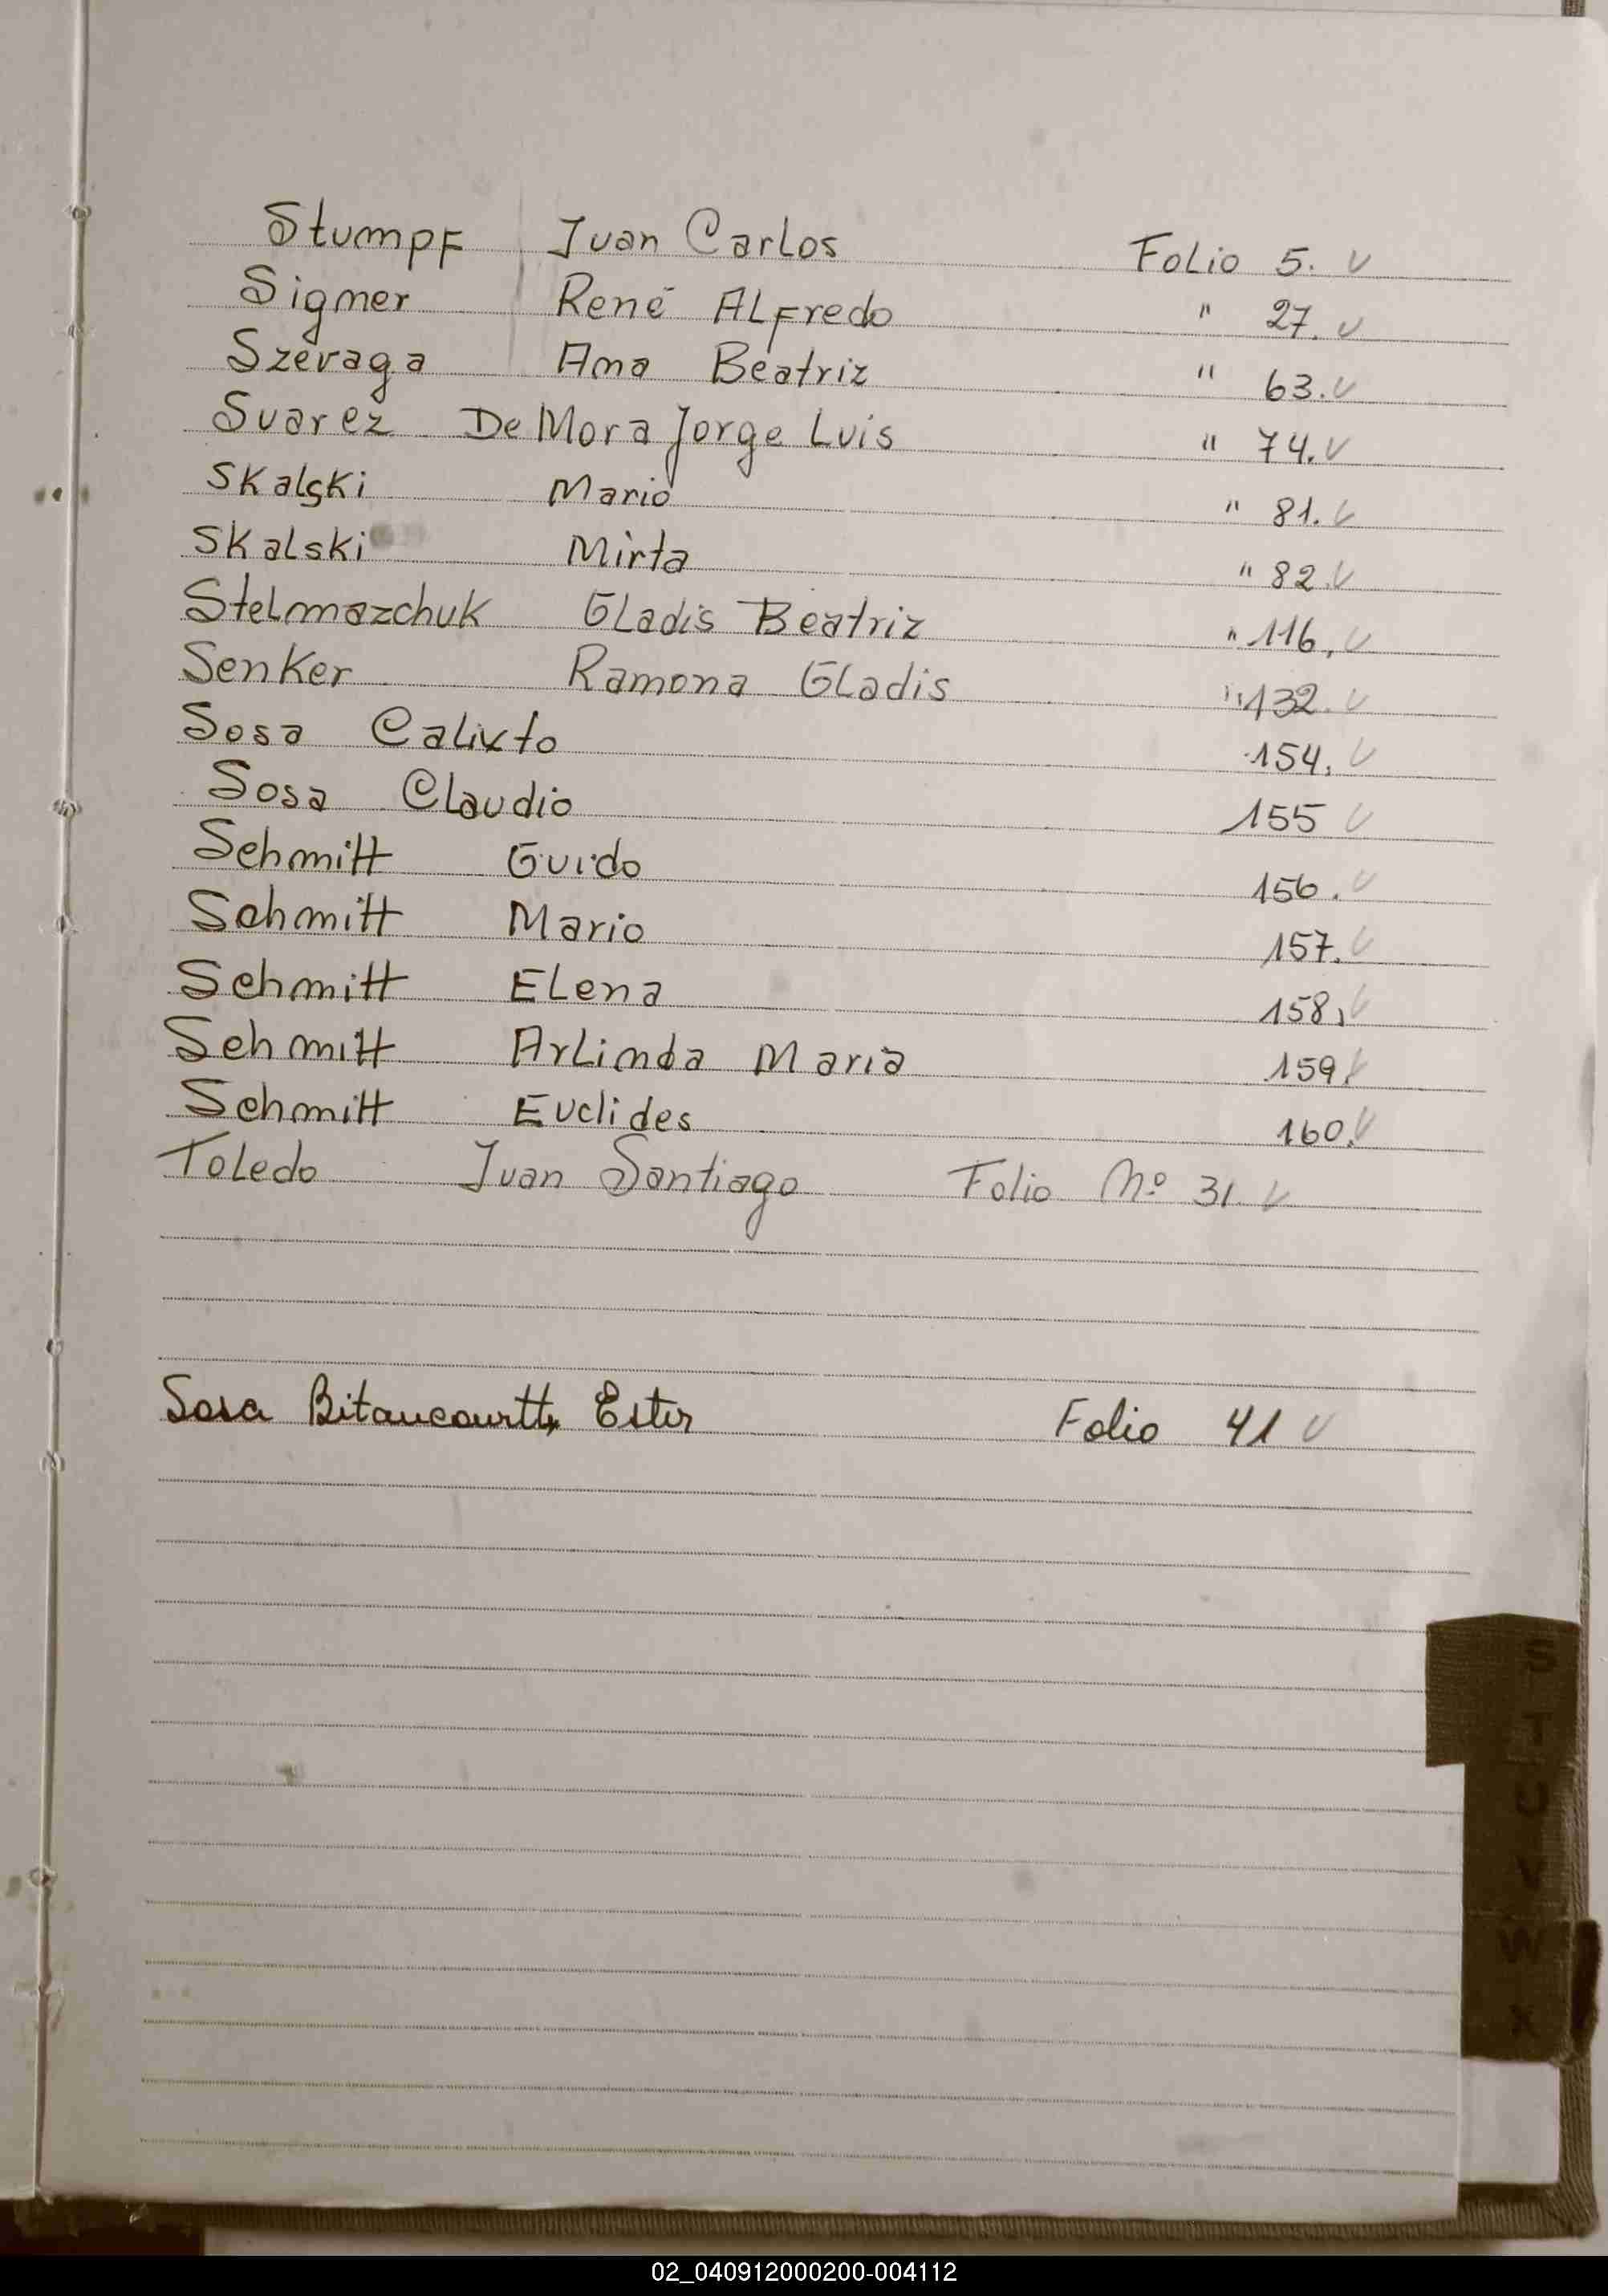 Stumpf Juan Carlos Folio 5. v
Sigmer René Alfredo " 27. v
Szeraga Ana Beatriz " 63. v
Suarez De Mora Jorge Luis " 74. v
Skalski Mario " 81. v
Skalski Mirta " 82. v
Stelmazchuk Gladis Beatriz " 116, v
Senker Ramona Gladis " 132. v
Sosa Calixto 154. v
Sosa Claudio 155 v
Schmitt Guido 156. v
Schmitt Mario 157. v
Schmitt Elena 158, v
Schmitt Arlinda Maria 159. v
Schmitt Euclides 160. v
Toledo Juan Santiago Folio Nº 31. v
Sosa Bitancourtt, Ester Folio 41 v
S
T
U
V
W
X
02_040912000200-004112